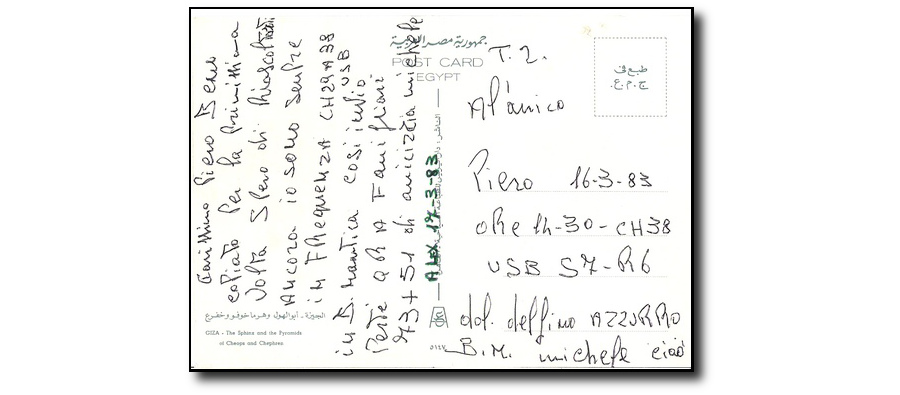 Carissimo Piero Sono
copiato Per la Primissima
Volta Spero di Riascoltarti
Ancora io sono Sempre
in FREquENZA CH29A38
USB
in B. Nautica cosi invio
Perte QRA Famigliari
73+51 di amicizia michele
جمهورية مصر العربية
POST CARD
EGYPT
طبع فى
ج.م.ع.
T.2.
Al'amico
Piero 16-3-83
oRe 14-30-CH38
USB S7-R6
dal delfino AZZURRO
B.M. michele ciao
ALEX 17-3-83
الجيزة - أبو الهول وهرما خوفو وخفرع
GIZA - The Sphinx and the Pyramids
of Cheops and Chephren
٥١٤٧